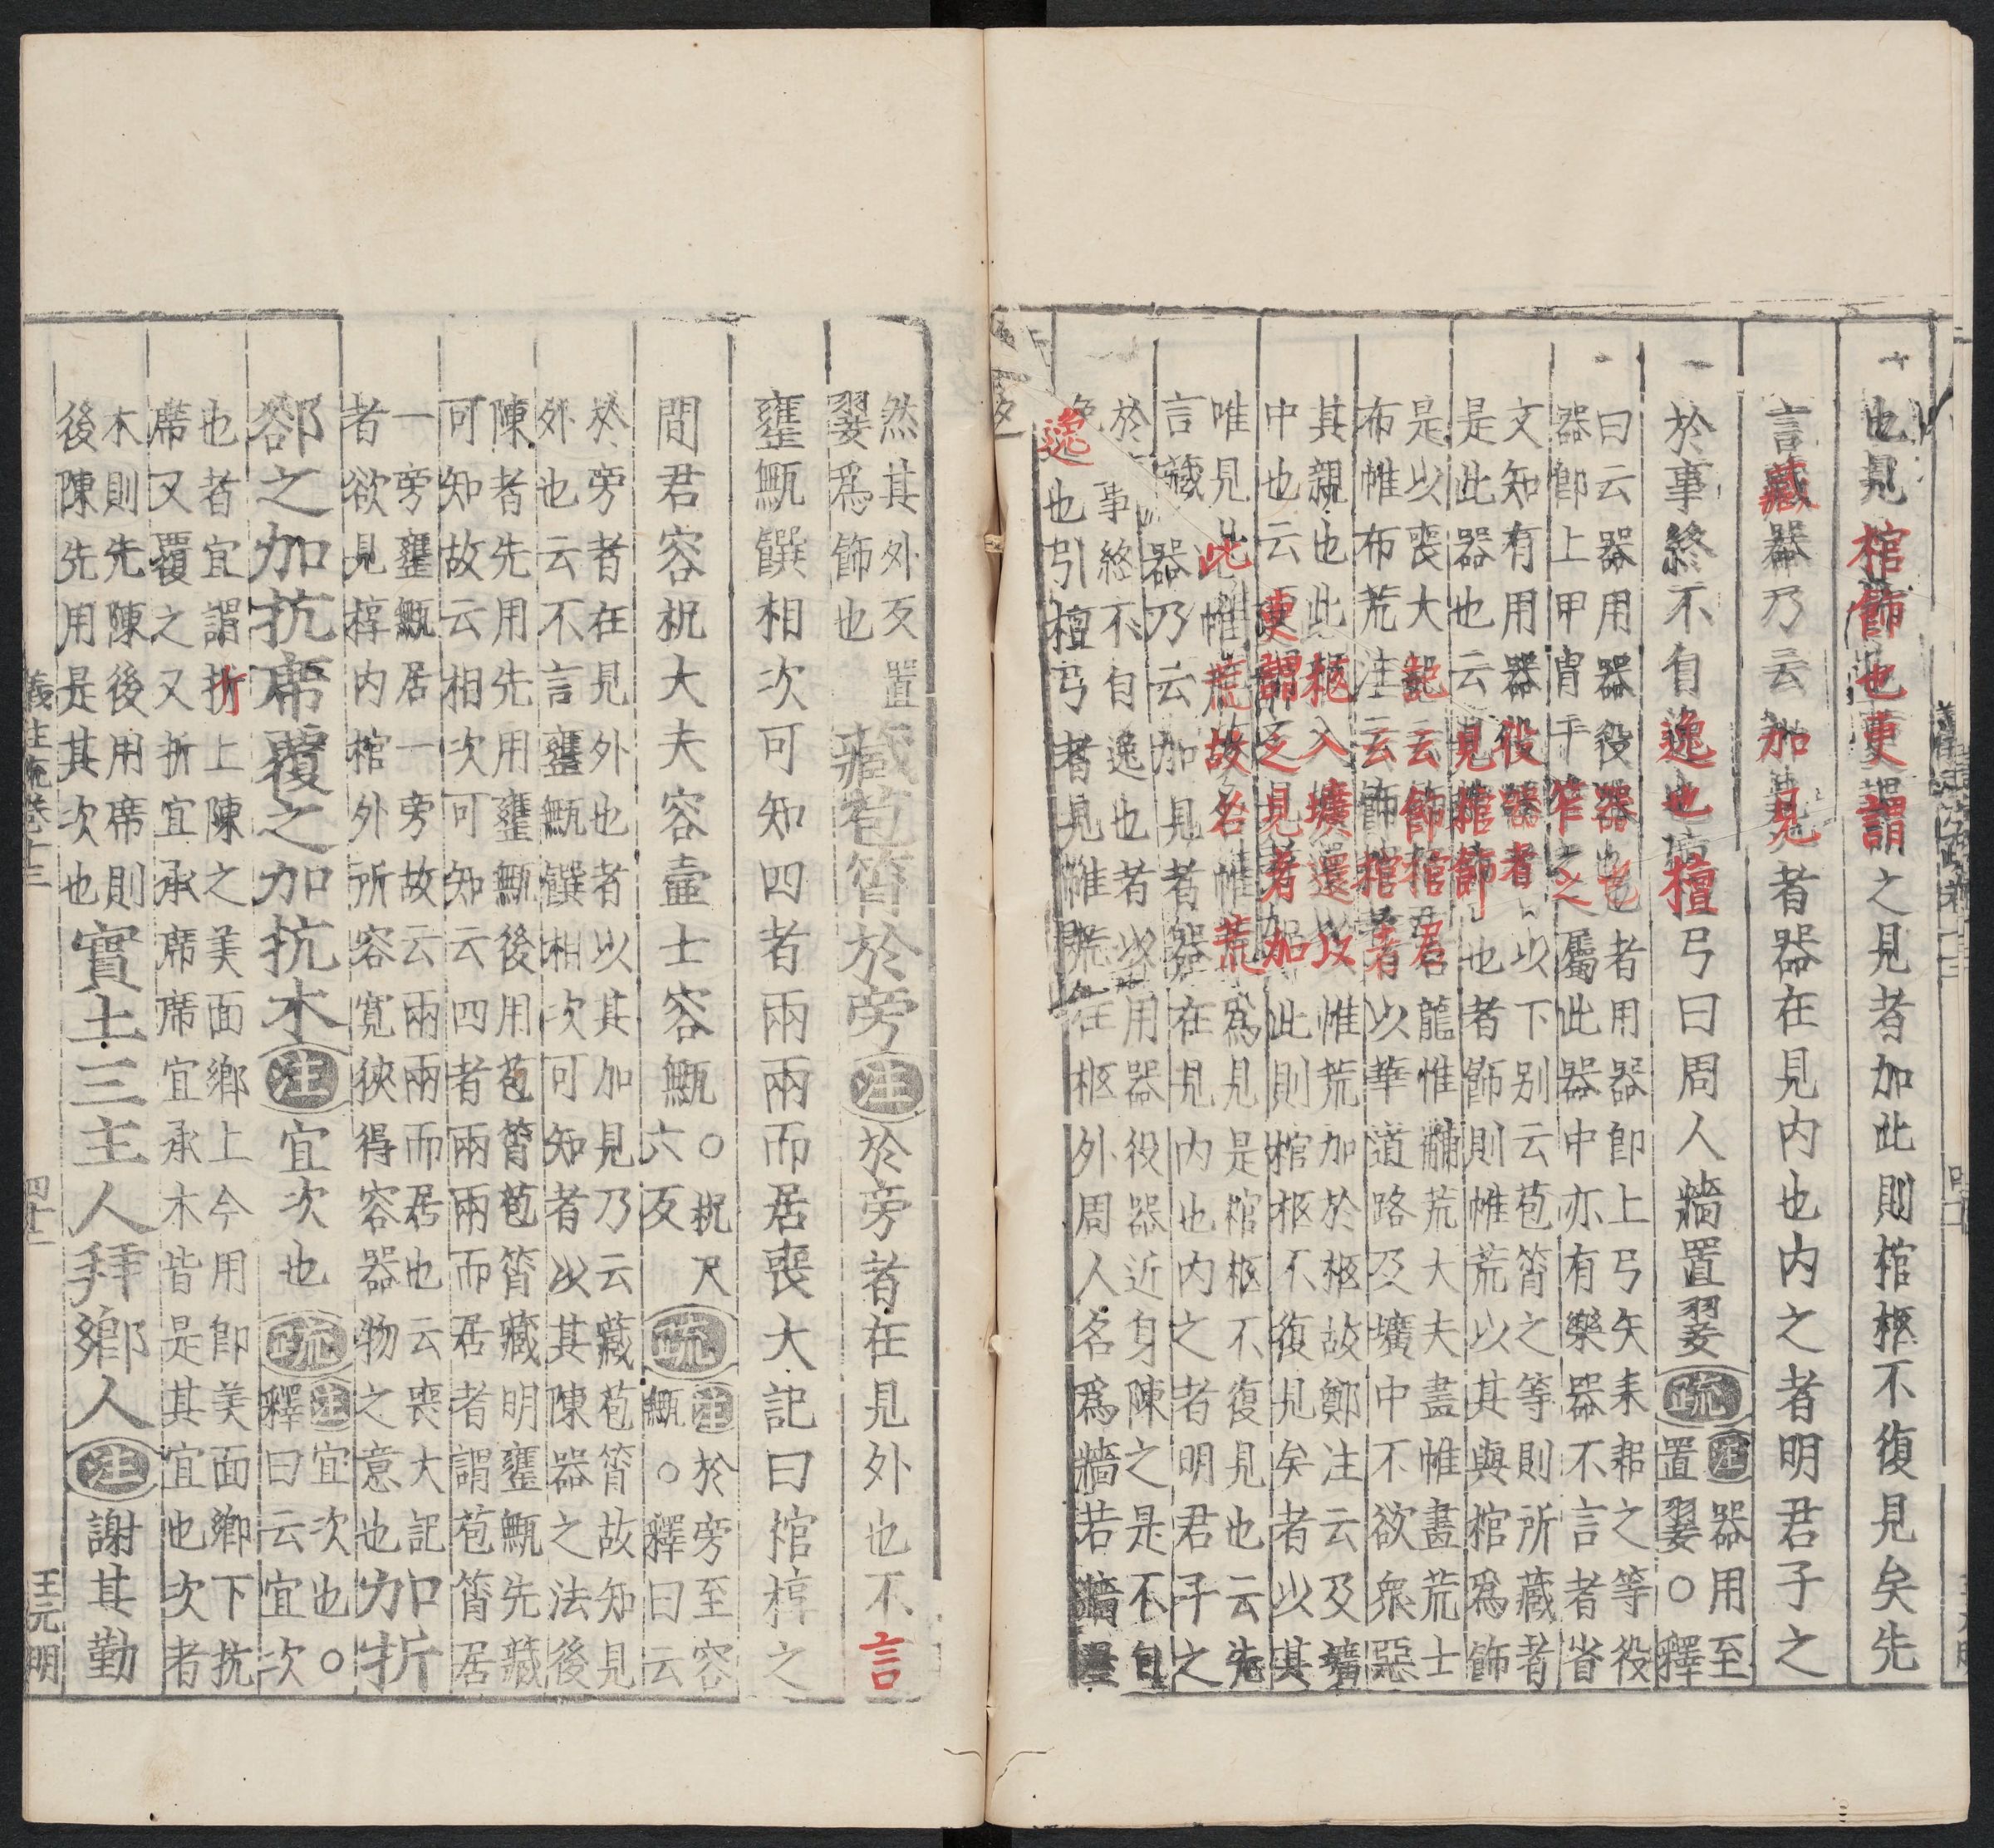 也見棺飾也更謂之見者加此則棺柩不復見矣先
言藏器乃云加見者器在見內也內之者明君子之
於事終不自逸也檀弓曰周人牆置翣疏注器用至
置翣○釋
曰云器用器役器也者用器卽上弓矢耒耜之等役
器卽上甲冑干笮之屬此器中亦有樂器不言者省
文知有用器役器者以下别云苞筲之等則所藏者
是此器也云見棺飾也者飾則帷荒以其與棺爲飾
是以喪大記云飾棺君龍帷黼荒大夫畫帷畫荒士
布帷布荒注云飾棺者以華道路及壙中不欲衆惡
其親也此柩入壙還以帷荒加於柩故鄭注云及壙
中也云更謂之見者加此則棺柩不復見矣者以其
唯見此帷荒故名帷荒爲見是棺柩不復見也云先
言藏器乃云加見者器在見內也內之者明君子之
於事終不自逸也者以用器役器近身陳之是不自
逸也引檀弓者見帷荒在柩外周人名爲牆若牆屋
然其外又置
翣爲飾也
藏苞筲於旁注於旁者在見外也不言
甕甒饌相次可知四者兩兩而居喪大記曰棺椁之
間君容柷大夫容壷士容甒○柷尺
六反
疏注於旁至容
甒○釋曰云
於旁者在見外也者以其加見乃云藏苞筲故知見
外也云不言甕甒饌相次可知者以其陳器之法後
陳者先用先用甕甒後用苞筲苞筲藏明甕甒先藏
可知故云相次可知云四者兩兩而居者謂苞筲居
一旁甕甒居一旁故云兩兩而居也云喪大記
者欲見椁內棺外所容寬狹得容器物之意也
加折
卻之加抗席覆之加抗木注宜次也疏注宜次也○
釋曰云宜次
也者宜謂折上陳之美面鄉上今用卽美面鄉下抗
席又覆之又折宜承席席宜承木皆是其宜也次者
木則先陳後用席則
後陳先用是其次也
實土三主人拜鄉人注謝其勤
儀注疏卷十三
四十一
王元明